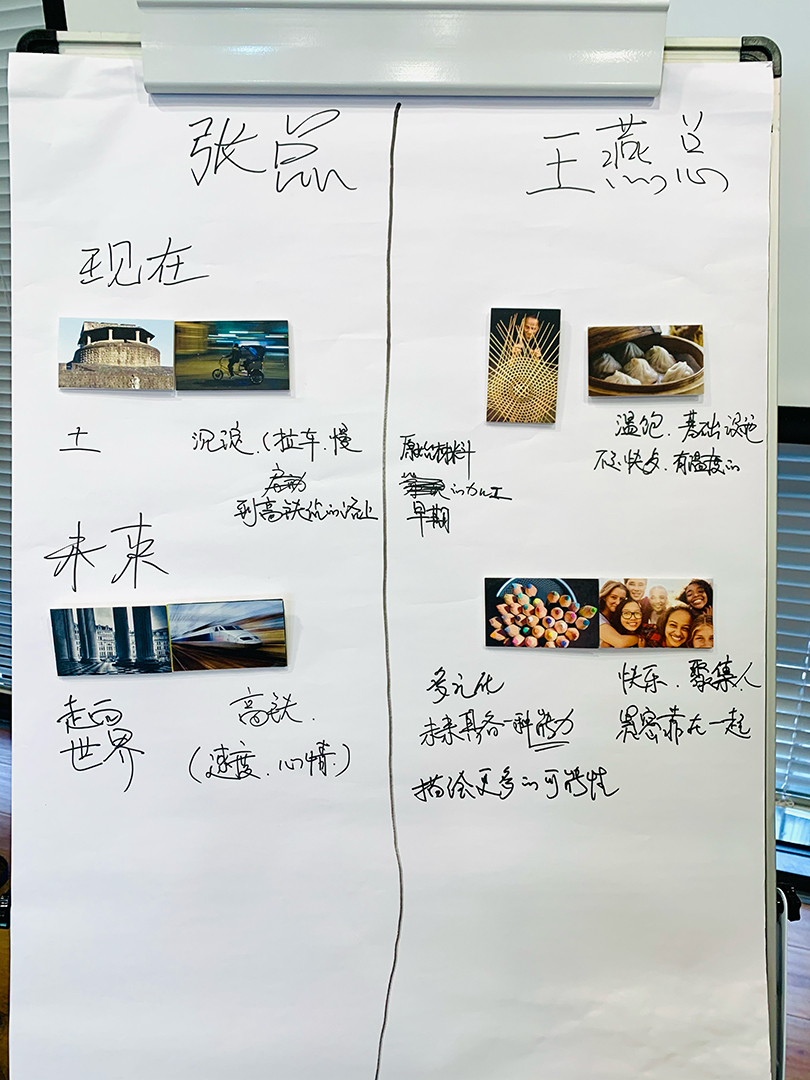 张总
王燕总
现在
土
沉淀.(拉车.慢
到高铁价的路上
原始材料
的加工
早期
温饱.基础设施
不是快乡.有温度的
未来
走向
世界
高铁.
(速度.心情.)
多元化
未来具备一种能力
描绘更多的可能性
快乐.聚集人
紧密靠在一起